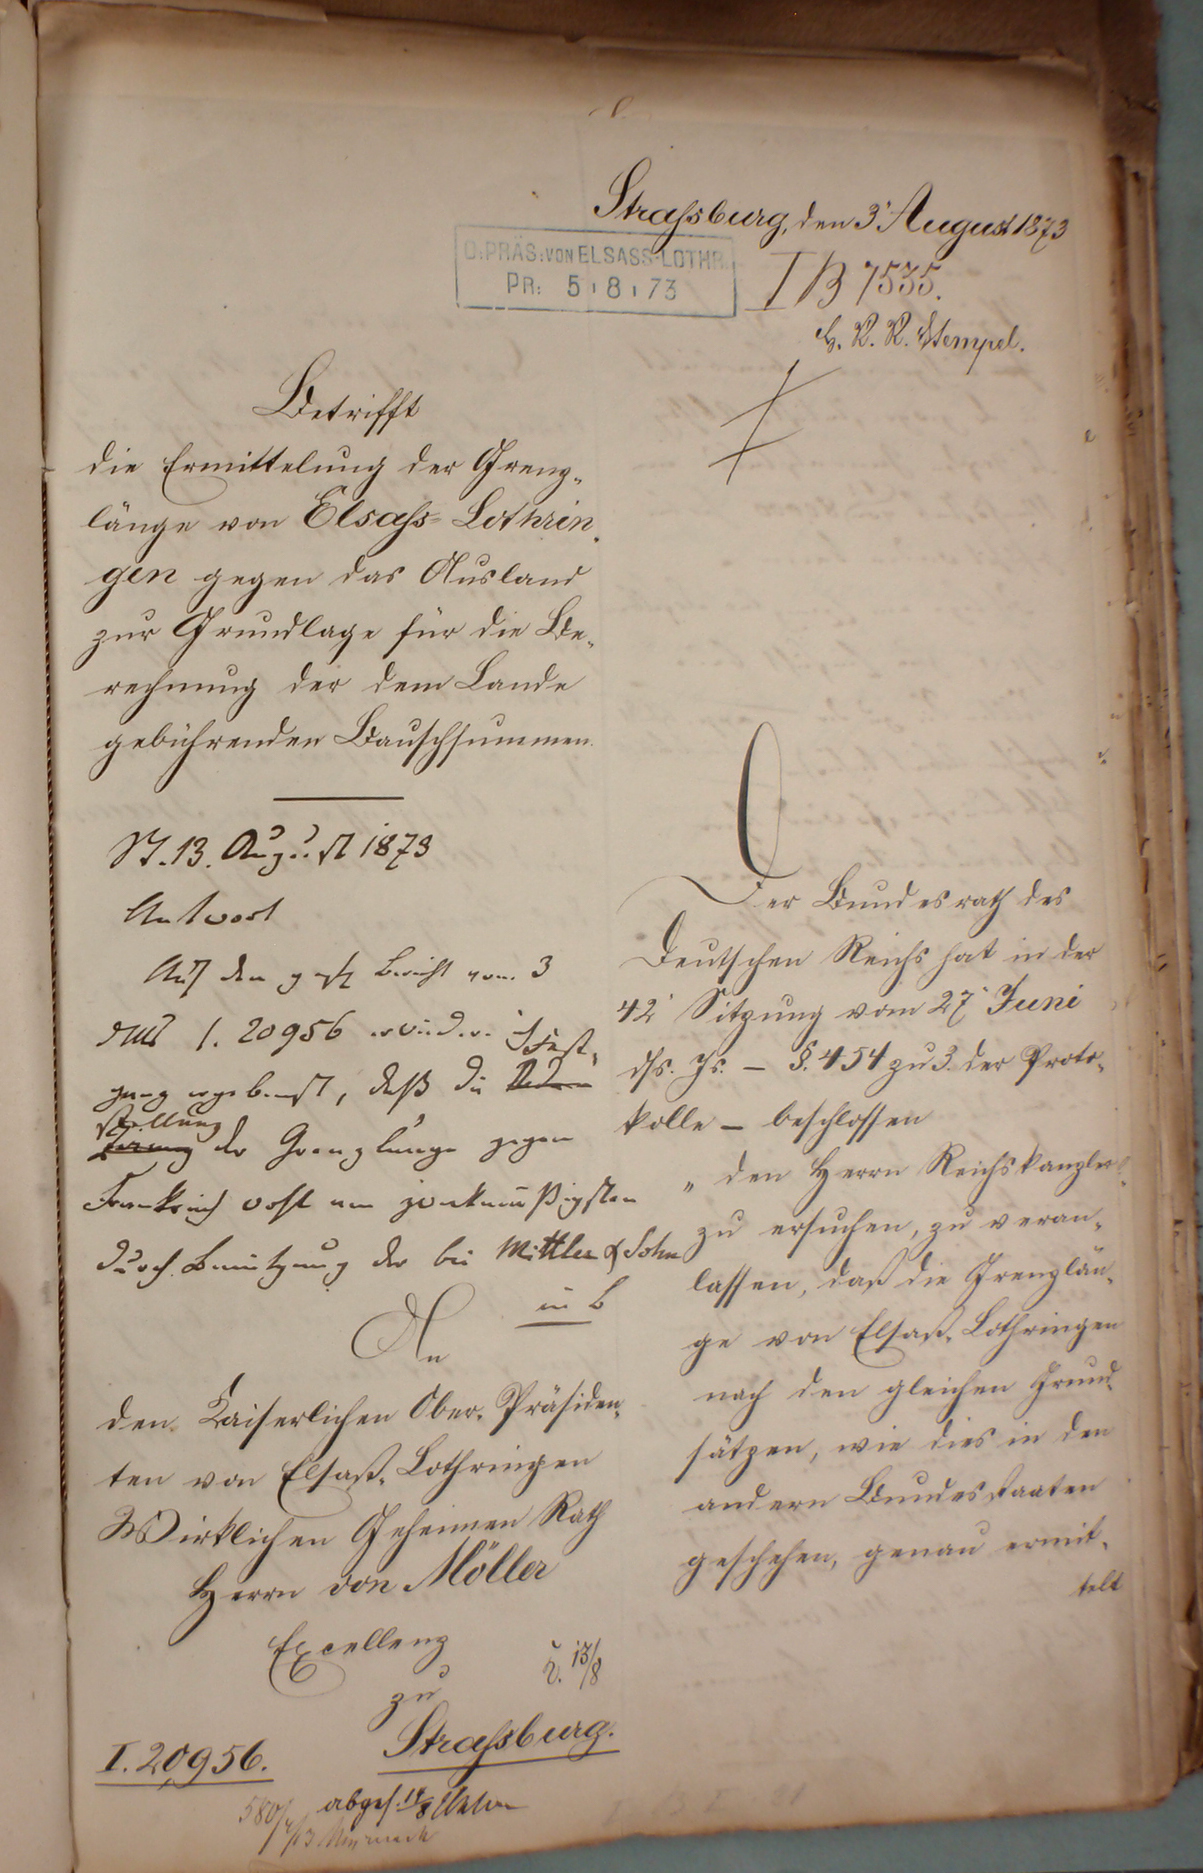 Straßburg, den 3' August 1873
O. PRÄS. VON ELSASS-LOTHR.
PR: 5.8.73
I B 7535.
H. R. R. Stempel.
Betrifft
die Ermittelung der Grenz-
länge von Elsaß-Lothrin-
gen gegen das Ausland
zur Grundlage für die Be-
rechnung der dem Lande
gebührenden Bauschsummen.
St. 13. August 1873
Antwort
Auf den Bericht vom 3
I. 20956
ergebenst, daß die
stellung
der Grenzlänge gegen
Frankreich wohl am zweckmäßigsten
durch Benützung der bei Mittler & Sohn
in b
An
den Kaiserlichen Ober-Präsiden-
ten von Elsaß-Lothringen
Wirklichen Geheimen Rath
Herrn von Möller
Excellenz
13/8
zu
Straßburg.
I. 20956.
abges. 14/8
Der Bundesrath des
Deutschen Reichs hat in der
42' Sitzung vom 27' Juni
ds. Js. – §. 454 zu 3. der Proto-
kolle – beschlossen
„den Herrn Reichskanzler
zu ersuchen, zu veran-
lassen, daß die Grenzlän-
ge von Elsaß-Lothringen
nach den gleichen Grund-
sätzen, wie dies in den
andern Bundesstaaten
geschehen, genau ermit-
telt